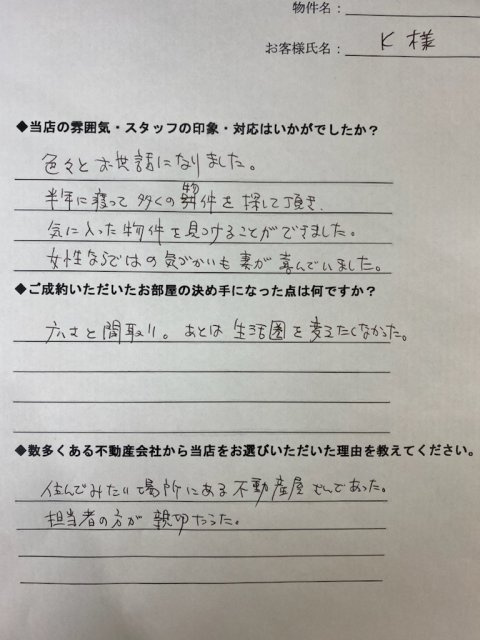 物件名：
お客様氏名： K 様
◆当店の雰囲気・スタッフの印象・対応はいかがでしたか？
色々とお世話になりました。
半年に寝って多くの物件を探して頂き、
気に入った物件を見つけることができました。
女性ならではの気づかいも妻が喜んでいました。
◆ご成約いただいたお部屋の決め手になった点は何ですか？
広さと間取り。あとは生活圏を変えたくなかった。
◆数多くある不動産会社から当店をお選びいただいた理由を教えてください。
住んでみたい場所にある不動産屋さんであった。
担当者の方が親切だった。